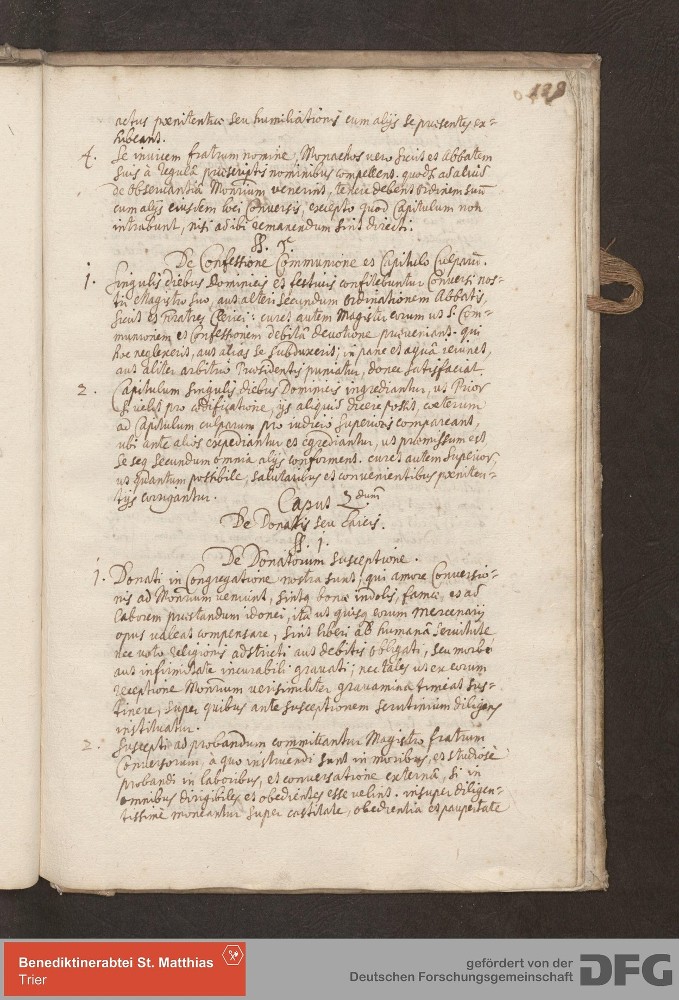 actus poenitentiae seu humiliationis cum alijs se praesentes ex=
hibeant.
4. Se invicem fratrum nomine, Monachos vero sicut et Abbatem
suis à regulâ praescriptis nominibus compellent. quodsi ad alius
de observantiâ Monrium venerint, tenere debent ordinem suũ
cum alijs eiusdem loci Conversis, excepto quod Capitulum non
intrabunt, nisi ad ibi remanendum sint directi.
De Confessione Communione et Capitulo Culparũ.
1. Singulis diebus Dominicis et festivis confitebuntur Conversi nos=
tri Magistro suo, aut alteri secundum ordinationem Abbatis
sicut et fratres Clerici: curet autem Magister eorum ut S. Com=
munionem et Confessionem debitâ devotione praeveniant. qui
hoc neglexerit, aut alias se subduxerit; in pane et aquâ ieiunet,
aut aliter arbitrio Praesidentis puniatur, donec satisfaciat.
2. Capitulum singulis diebus Dominicis ingrediantur, ut Prior
si velit pro aedificatione, ijs aliquid dicere possit, caeterum
ad Capitulum culparum pro iudicio superioris compareant,
ubi ante alios expediantur et egrediantur, ut praemissum est
se seq secundum omnia alijs conforment. curet autem superior,
ut quantum possibile, salutaribus et convenientibus poeniten=
tijs corrigantur.
Caput 2dum
De Donatis seu Laicis.
§. 1.
De Donatorum susceptione.
1. Donati in Congregatione nostra sunt, qui amore Conversio=
nis ad Monrium veniunt, sintq bonae indolis, famae, et ad
laborem praestandum idonei, ita ut quisq eorum mercenarij
opus valeat compensare, sint liberi ab humanâ servitute,
nec voto religionis adstricti aut debitis obligati, seu morbo
aut infirmitate incurabili gravati; nec tales ut ex eorum
receptione Monrium verisimiliter gravamina timeat sus=
tinere, super quibus ante susceptionem scrutinium diligens
instituatur.
2. Suscepti ad probandum committantur Magistro fratrum
Conversorum, à quo instruendi sunt in moribus, et studiosè
probandi in laboribus, et conversatione externâ, si in
omnibus dirigibiles et obedientes esse velint. insuper diligen=
tissimè moneantur super castitate, obedientia et paupertate
Benediktinerabtei St. Matthias
Trier
gefördert von der
Deutschen Forschungsgemeinschaft
DFG